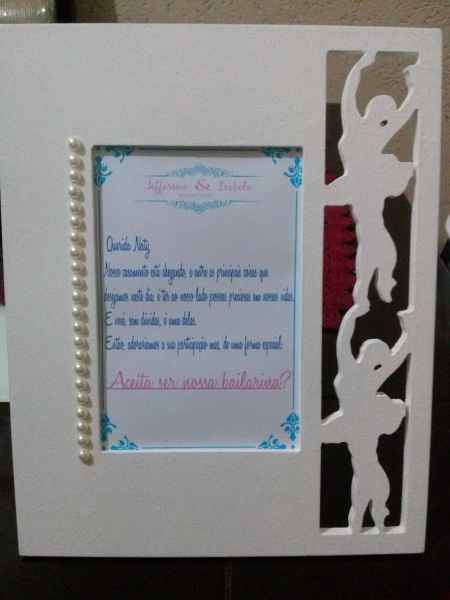 Jefferson & Isabela
Querida Naty,
Nosso casamento está chegando, e entre as principais coisas que
desejamos neste dia, é ter ao nosso lado pessoas preciosas em nossas vidas.
E você, sem dúvidas, é uma delas.
Então, adoraríamos a sua participação mas, de uma forma especial:
Aceita ser nossa bailarina?